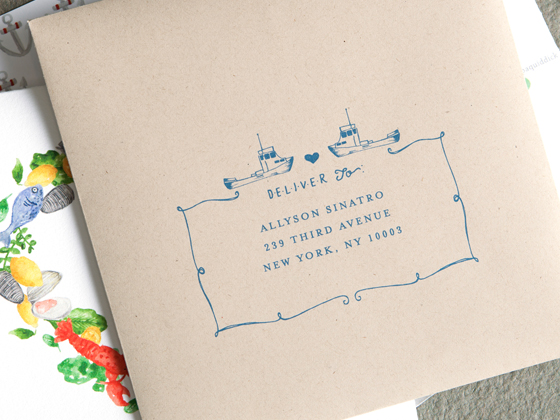 DELIVER To
ALLYSON SINATRO
239 THIRD AVENUE
NEW YORK, NY 10003